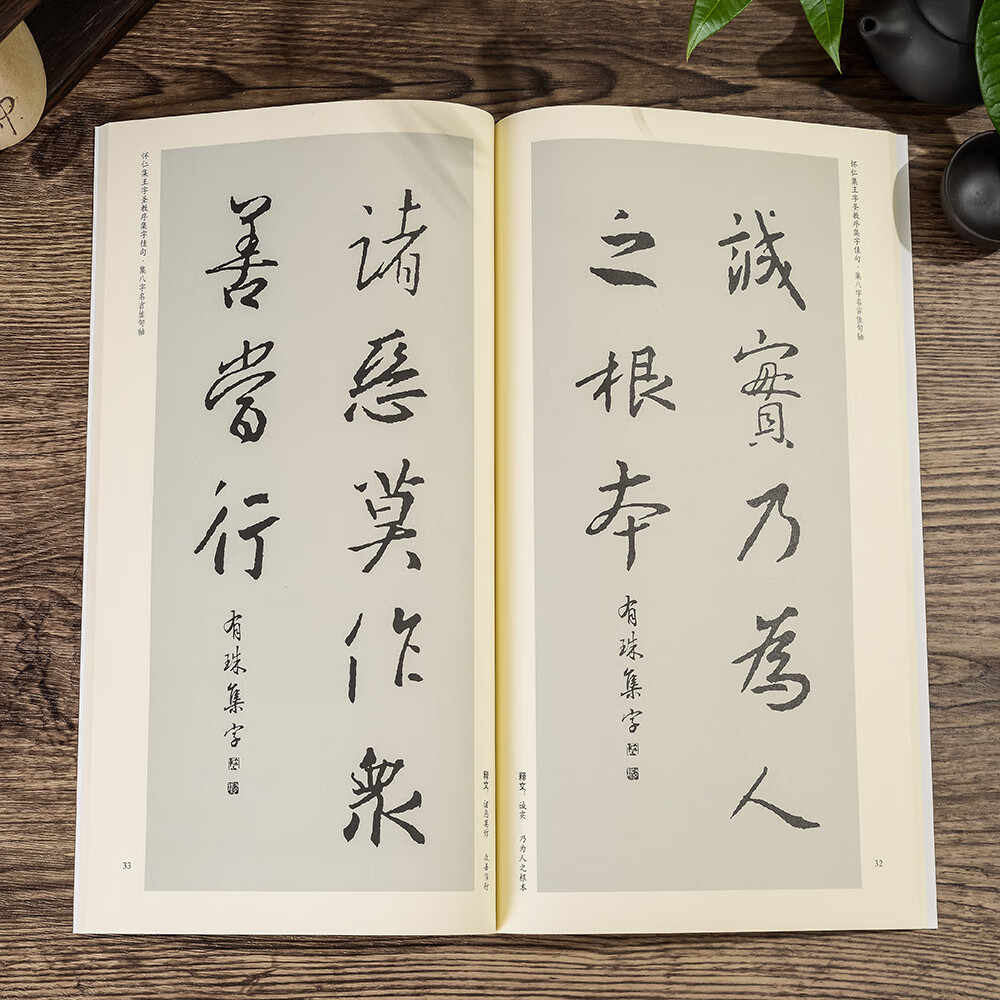 怀仁集王字圣教序集字佳句·集八字名言佳句轴
誠實乃為人
之根本
有珠集字
释文：诚实 乃为人之根本
32
诸惡莫作衆
善當行
有珠集字
释文：诸恶莫作 众善当行
怀仁集王字圣教序集字佳句·集八字名言佳句轴
33